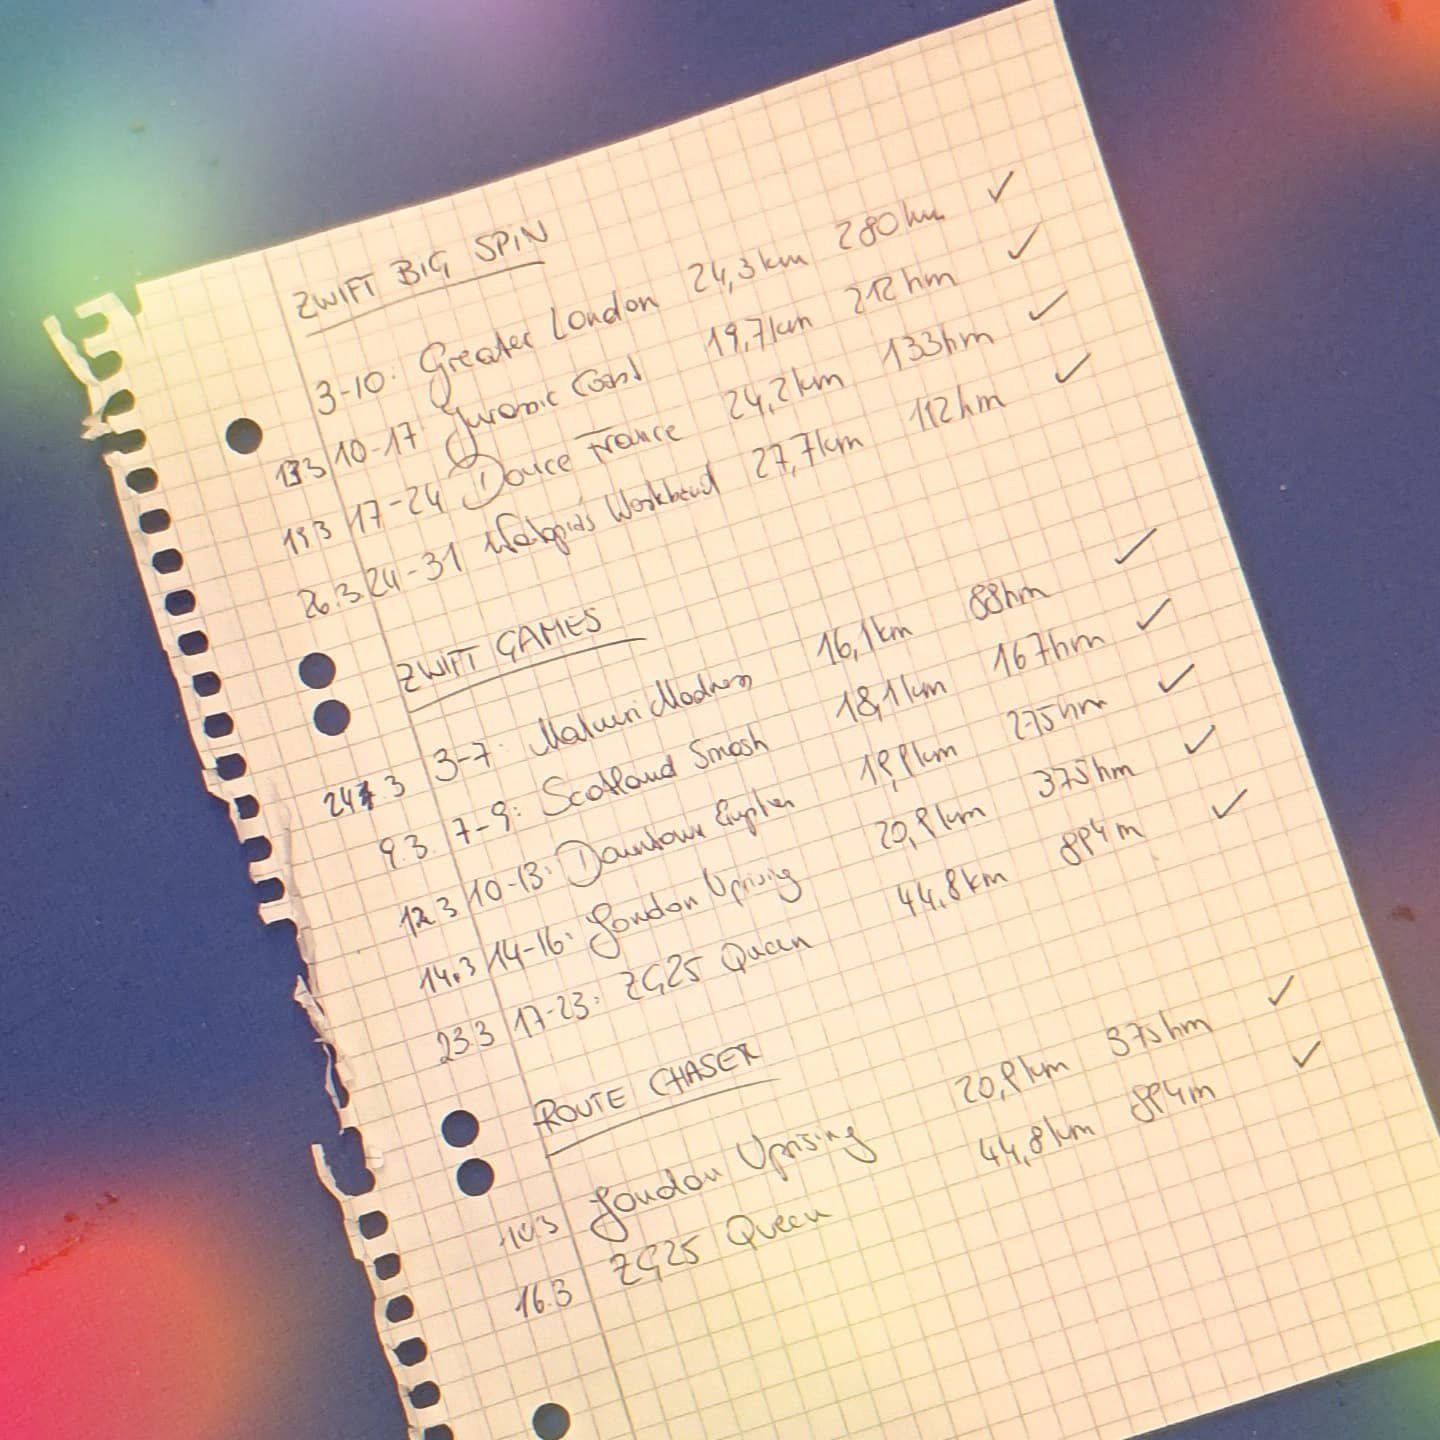 ZWIFT BIG SPIN
3-10: Greater London 24,3km 280hm ✓
13.3 10-17 Jurassic Coast 19,7km 212hm ✓
19.3 17-24 Douce France 24,2km 133hm ✓
26.3 24-31 27,7km 112hm ✓
ZWIFT GAMES
3 3-7: Makuri Madness 16,1km 88hm ✓
9.3. 7-9: Scotland Smash 18,1km 167hm ✓
12.3 10-13: Downtown 19,9km 275hm ✓
14.3 14-16: London Uprising 20,9km 375hm ✓
23.3 17-23: ZG25 Queen 44,8km 894m ✓
ROUTE CHASER
10.3 London Uprising 20,9km 375hm ✓
16.3 ZG25 Queen 44,8km 894m ✓